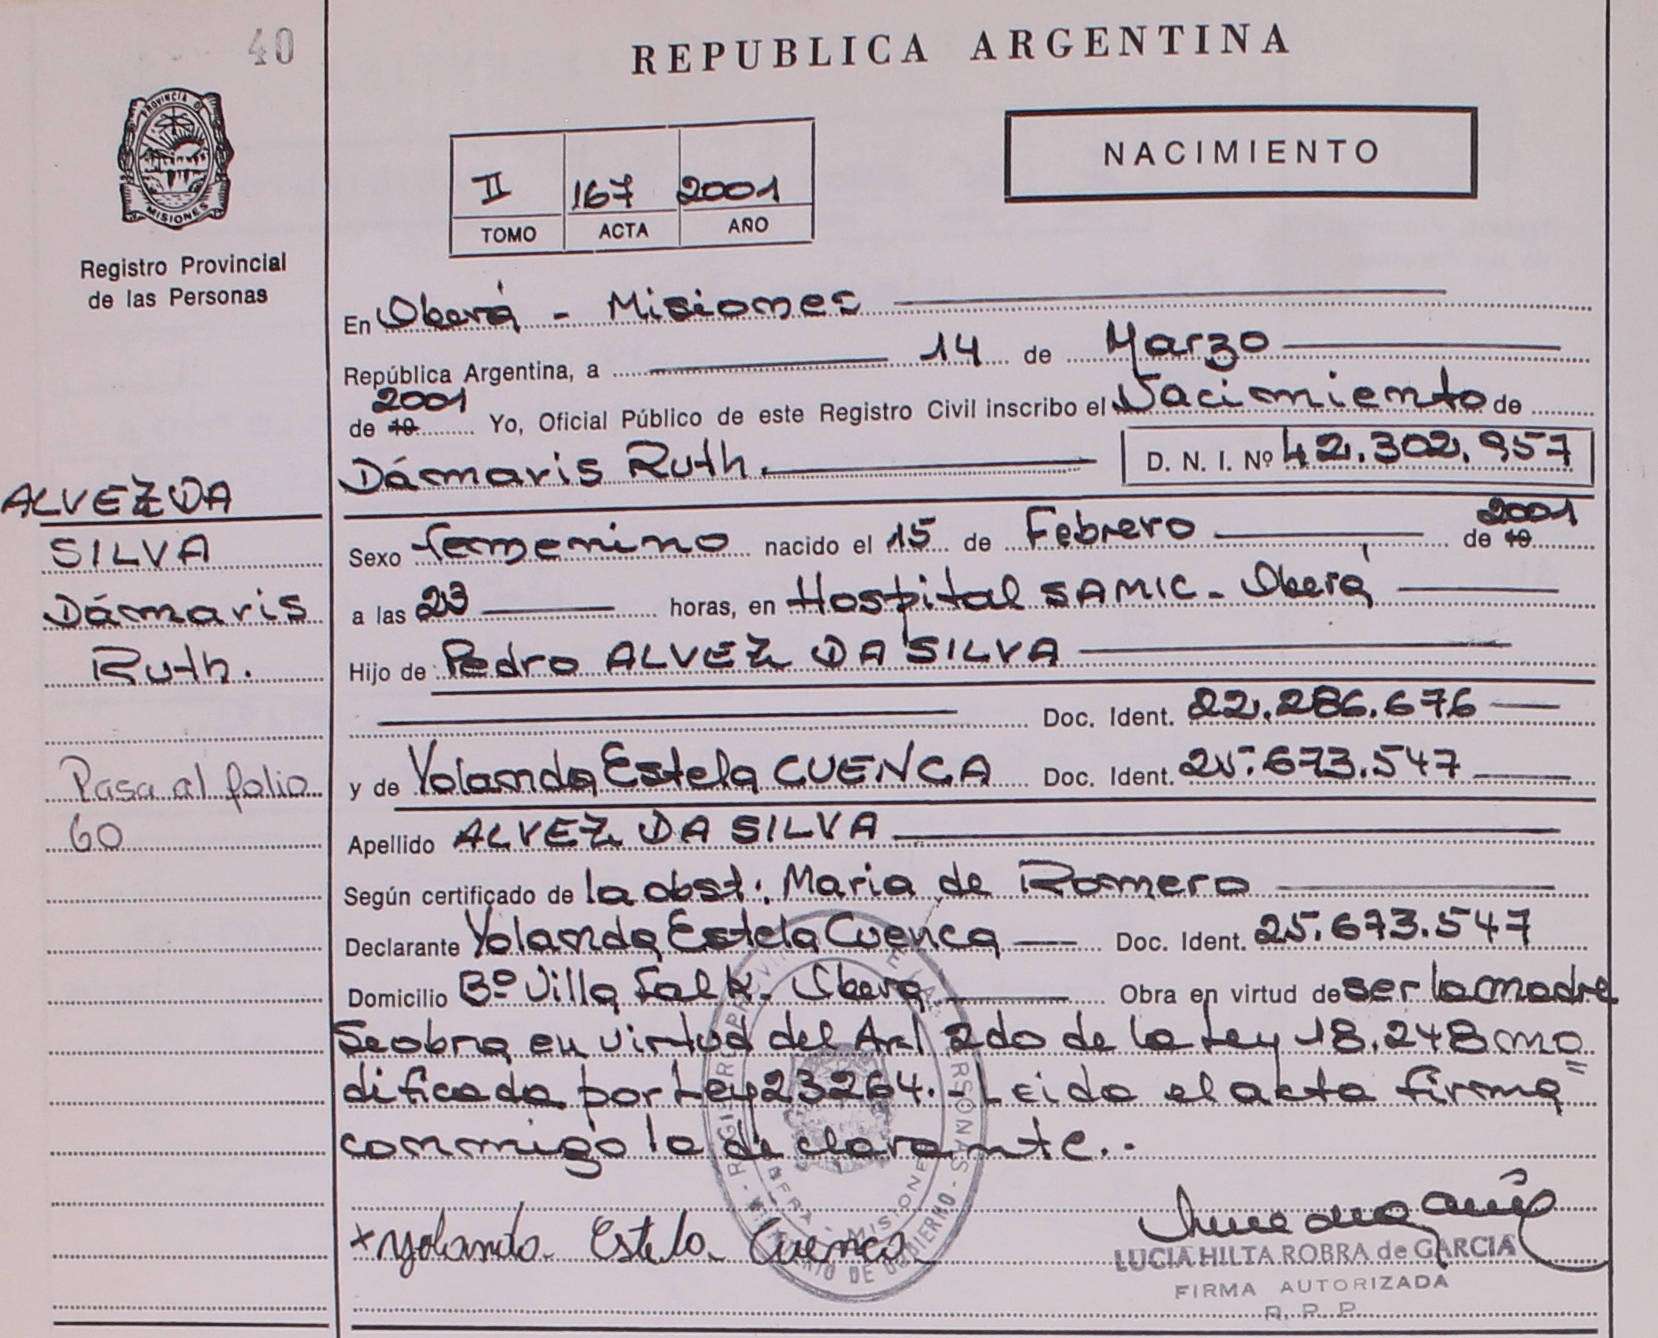 40
REPUBLICA ARGENTINA
PROVINCIA D
MISIONES
NACIMIENTO
II 167 2001
TOMO ACTA AÑO
Registro Provincial
de las Personas
En Oberá - Misiones
República Argentina, a 14 de Marzo
2001
de 19 Yo, Oficial Público de este Registro Civil inscribo el Nacimiento de
Dámaris Ruth. D. N. I. Nº 42.302.957
ALVEZ DA
SILVA
Dámaris
Ruth.
2001
Sexo femenino nacido el 15 de Febrero de 19
a las 23 horas, en Hospital SAMIC - Oberá
Hijo de Pedro ALVEZ DA SILVA
Doc. Ident. 22.286.676
Pasa al folio
60
y de Yolanda Estela CUENCA Doc. Ident. 25.673.547
Apellido ALVEZ DA SILVA
Según certificado de la obst: Maria de Romero
Declarante Yolanda Estela Cuenca Doc. Ident. 25.673.547
Domicilio Bº Villa Salk - Oberá Obra en virtud de ser la madre
Se obra en virtud del Art 2do de la Ley 18.248 mo
dificada por Ley 23264.- Leido el acta firma
conmigo la declarante..
+ Yolanda Estela Cuenca
LUCIA HILTA ROBRA de GARCIA
FIRMA AUTORIZADA
R. P. P.